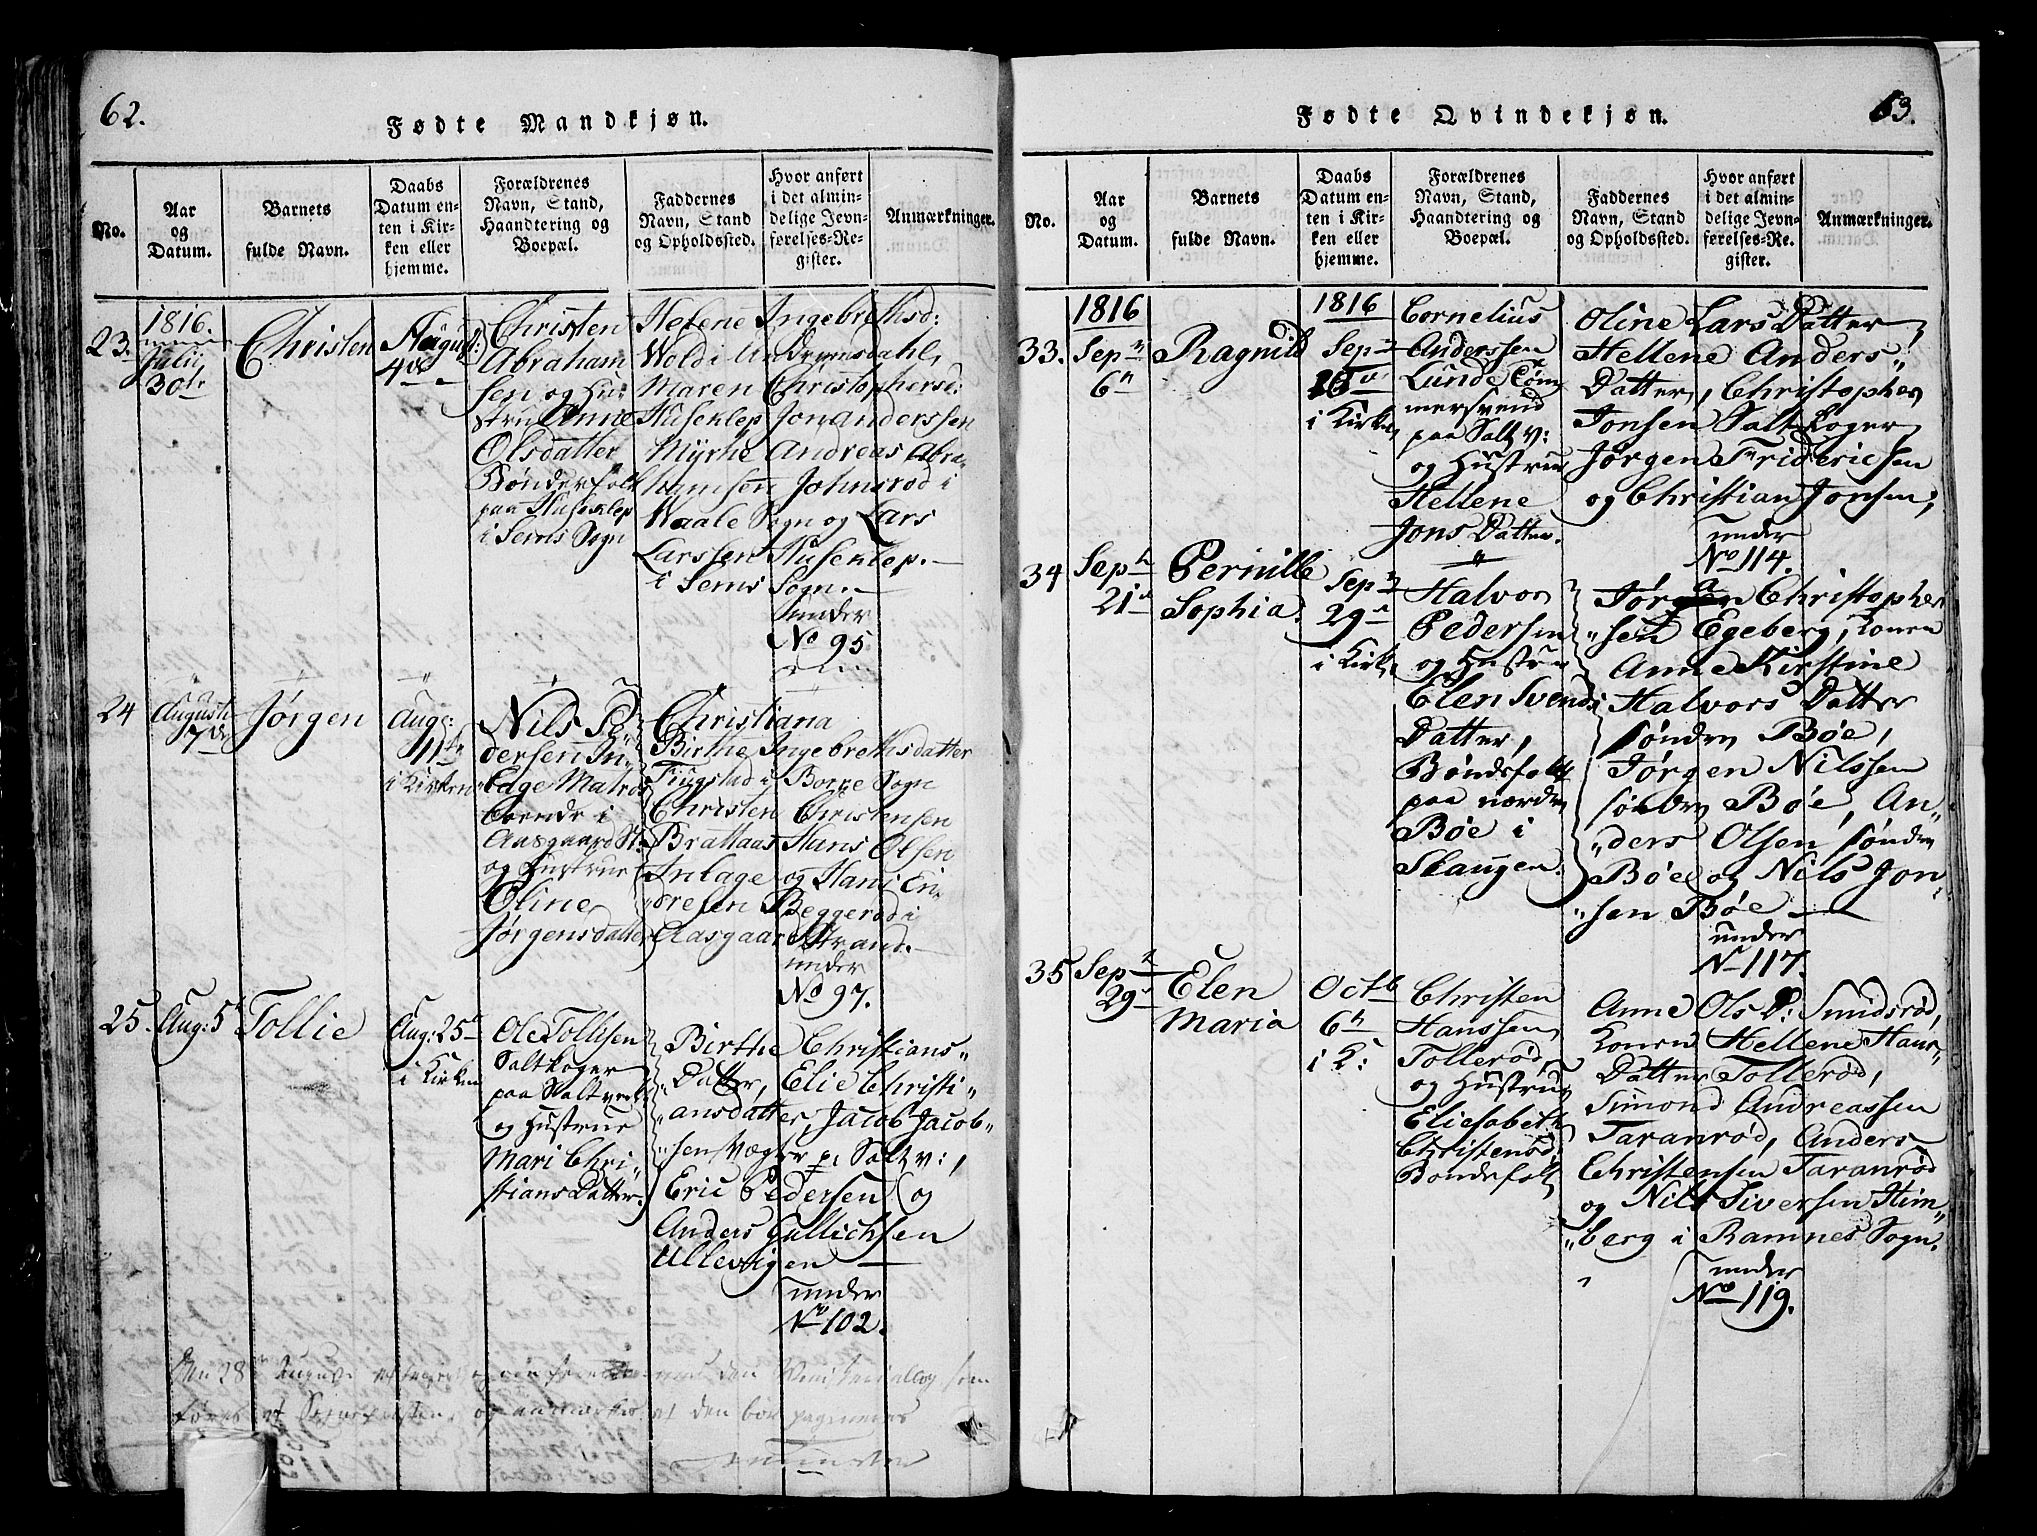 62.
Fødte Mandkjøn.
No.
Aar
og
Datum.
Barnets
fulde Navn.
Daabs
Datum en-
ten i Kir-
ken eller
hjemme.
Forældrenes
Navn, Stand,
Haandtering og
Boepæl.
Faddernes
Navn, Stand
og Opholdssted.
Hvor anført
i det almin-
delige Jevn-
førelses-Re-
gister.
Anmærkninger.
23.
1816.
Julii
30te
Christen
August:
4de
Christen
Abraham
sen og Hu
stru Anne
Olsdatter
Bønderfolk
paa Huseklep
i Sems Sogn
Helene Ingebrethsd:
Wold i Undrumsdahl,
Maren Christophersd:
Huseklep Jon Anderssen
Myrhe Andreas Abra-
hamsen Johnsrød i
Waale Sogn og Lars
Larssen Huseklep.
i Sems Sogn.
under
No 95
24
Augusti
7de
Jørgen
Aug:
11te
i Kirken
Nils Pe
dersen In
lage Matros
boende i
Aasgaard St.
og Hustrue
Oline
Jørgensdatter
Christiana
Birthe Ingebrethsdatter
i Borre Sogn
Christen Christensen
Brattaas Hans Olsen
Inlage og Hans
Beggerød i
Aasgaard Strand.
under
No 97.
25.
Aug: 5t
Tollie
Aug: 25t
i Kirken
Ole Tollisen
Saltkoger
paa Saltverk
og Hustrue
Mari Chri-
stians Datter.
Birthe Christians-
Datter, Elie Christi-
ansdatter, Jacob Jacob-
sen Vægter p: Saltv:,
Eric Pedersen og
Anders Gullichsen
Ullevigen
under
No 102.
Den 28de August
og den bør pagineres
63.
Fødte Qvindekjøn.
No.
Aar
og
Datum.
Barnets
fulde Navn.
Daabs
Datum en-
ten i Kir-
ken eller
hjemme.
Forældrenes
Navn, Stand,
Haandtering og
Boepæl.
Faddernes
Navn, Stand
og Opholdssted.
Hvor anført
i det almin-
delige Jevn-
førelses-Re-
gister.
Anmærkninger.
33.
1816
Sep
6
Ragnild
1816
Sep
i Kirken
Cornelius
Anderssen
Lunde Tøm
mersvend
paa Saltv:
og Hustrue
Hellene
Jons Datter.
Oline Lars Datter,
Hellene Anders
Datter, Christopher
Jonsen Saltkoger
Jørgen Fridericsen
og Christian Jonsen,
under
No 114.
34
Sep
21
Pernille
Sophia.
Sep
29
i Kirken
Halvor
Pedersen
og Hustrue
Elen Svends
Datter,
Bøndsfolk
paa nordre
Bøe i
Skaugen.
Christopher
sen Egeberg, Konen
Anne Kirstine
Halvors Datter
søndre Bøe,
Jørgen Nilssen
søndre Bøe, An-
ders Olsen søndre
Bøe og Nils Jon-
sen Bøe
under
No 117.
35
Sep
29
Elen
Maria
Octb
6
i K:
Christen
Hanssen
Tollerød
og Hustrue
Eliesabeth
Christensd:
Bondefolk
Anne Ols D: Smidsrød,
Konen Hellene Hans
Datter Tollerød,
Simond Andreassen
Taranrød, Anders
Christensen Taranrød
og Nils Siversen Him-
berg i Ramnes Sogn.
under
No 119.